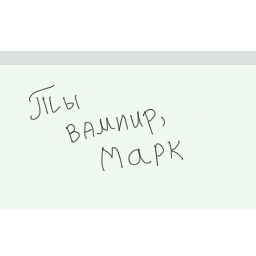 Ты
вампир,
Марк